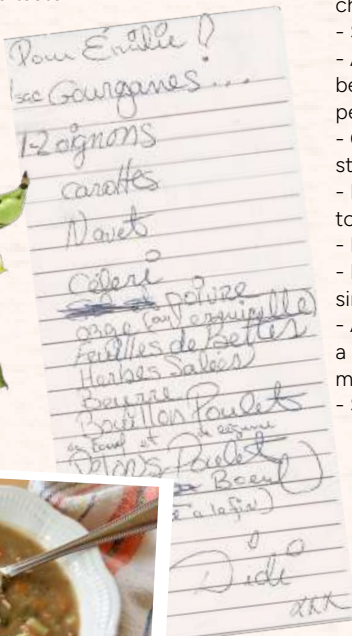 Pour Émilie !
1 sac Gourganes...
1-2 oignons
carottes
Navet
Céleri
poivre
orge (ou
Feuilles de bettes
Herbes Salées
Beurre
Bouillon Poulet
ou Boeuf et
Poulet
Boeuf)
à la fin)
Didi
xxx
ch
- S
- A
be
pe
- 
st
- 
to
- 
- 
si
- A
a
m
- S